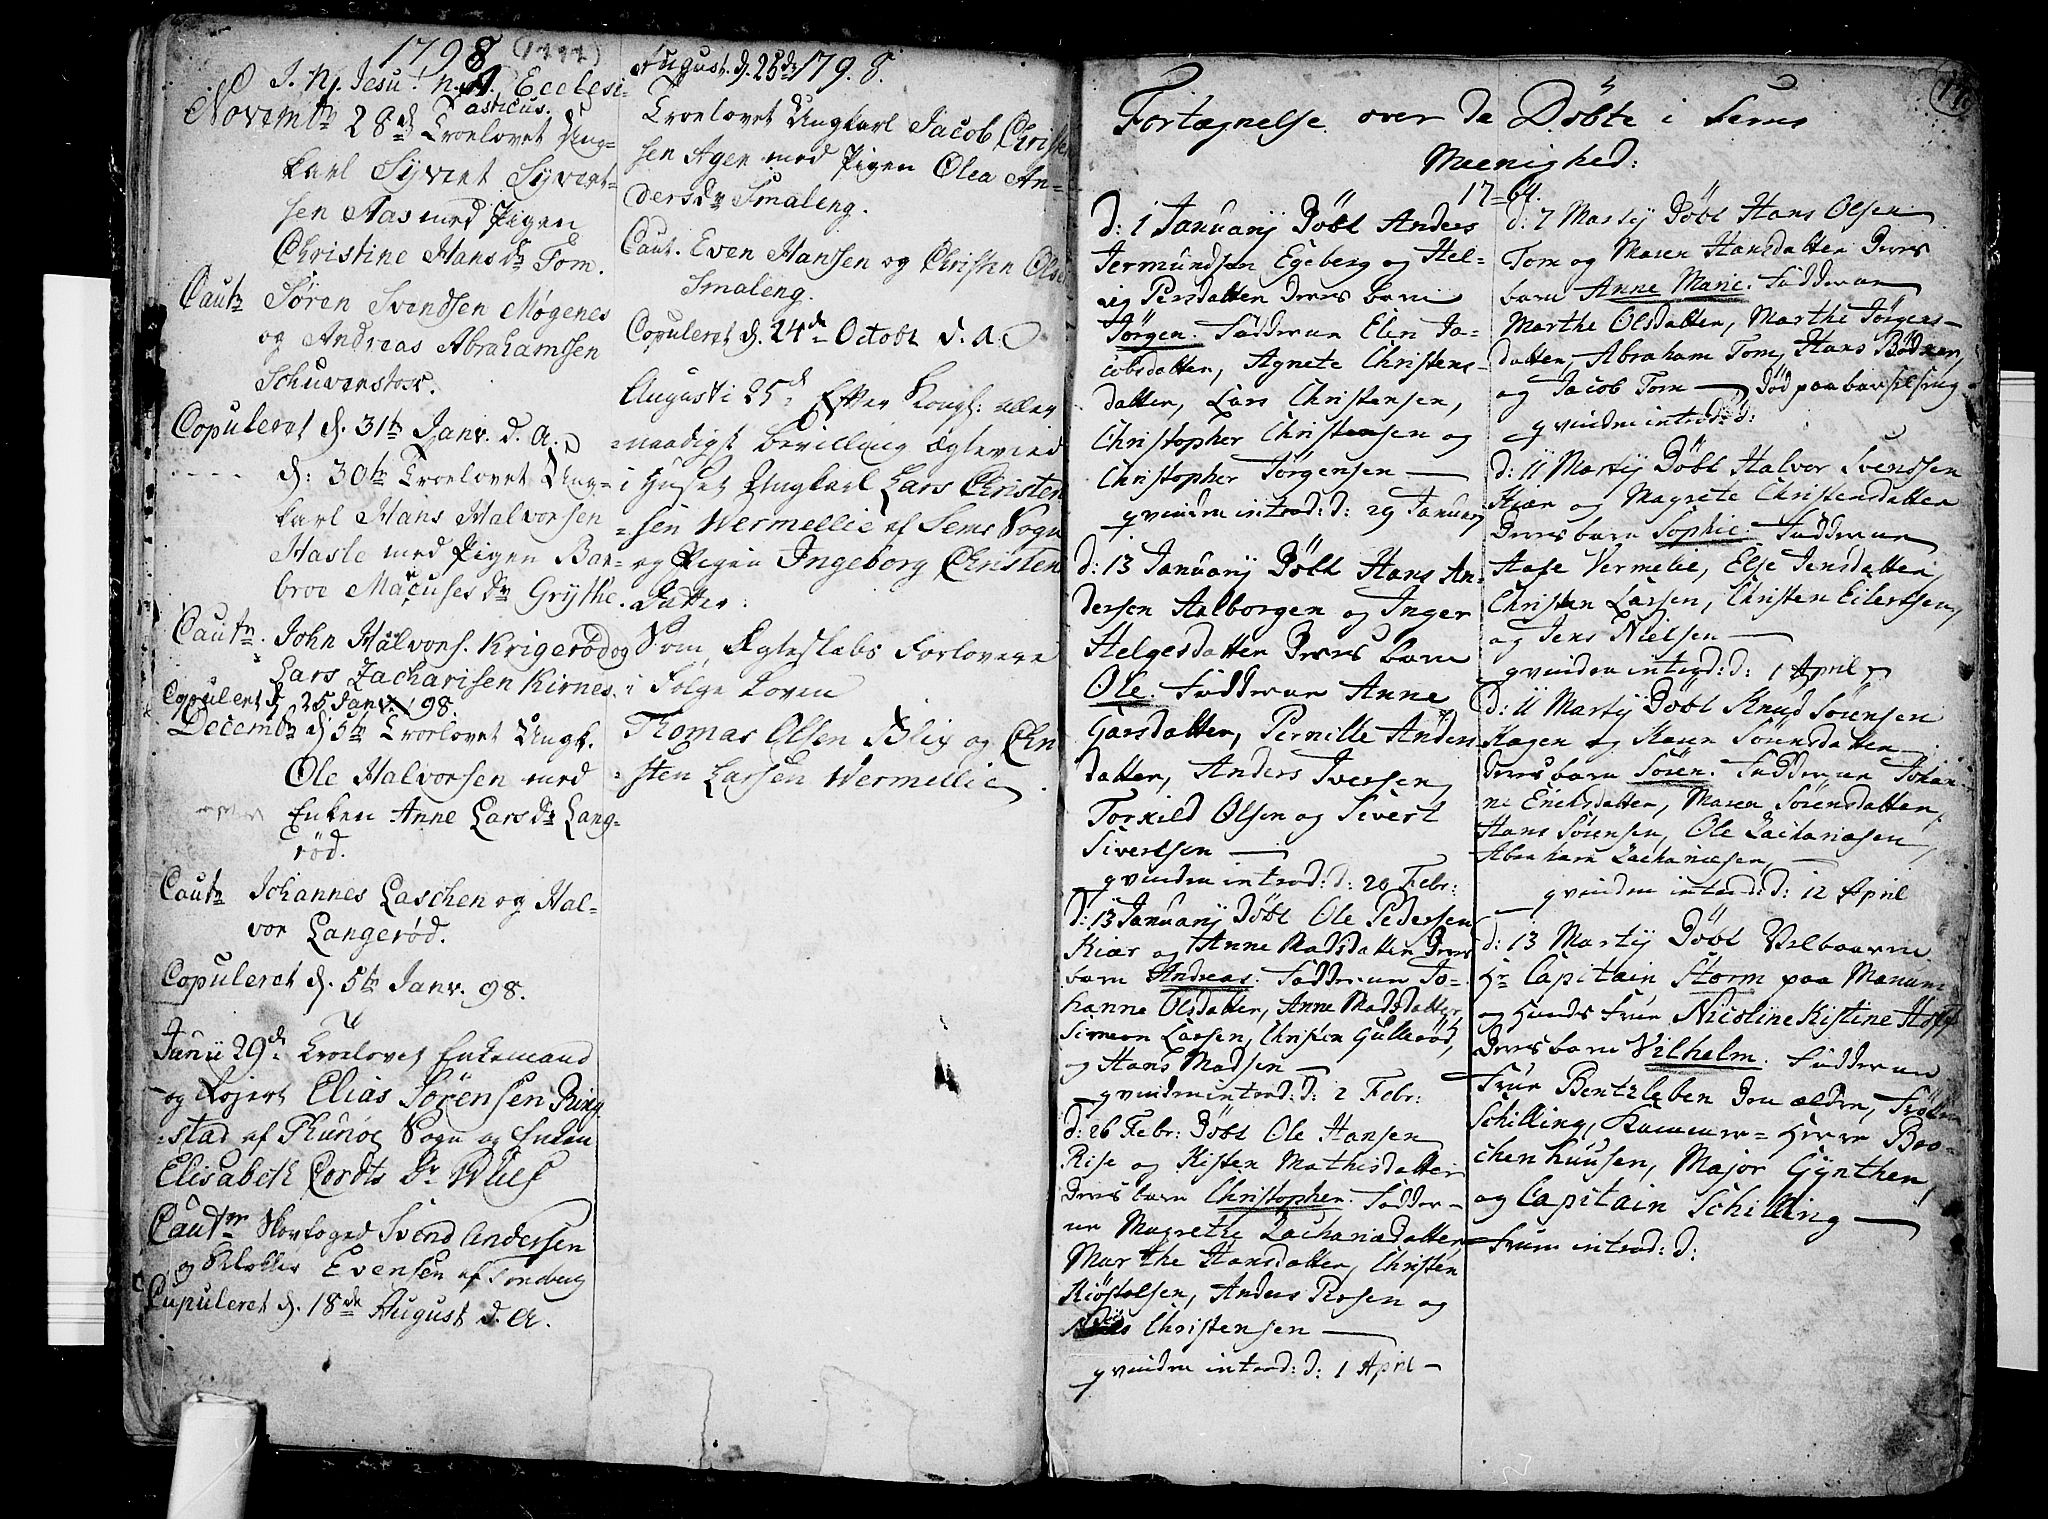 1798 (1797)
J. N. Jesu! N. A. Ecclesi-
asticus.
Novembr 28d Troelovet Ung-
karl Syvert Syvert-
sen Aas med Pigen
Christine Hansdr Tom.
Cautr Sören Svendsen Møgenes
og Andreas Abrahamsen
Schuverstox.
Copuleret d. 31te Janv. d. A.
d: 30te Troelovet Ung-
karl Hans Halvorsen
Hasle med Pigen Bar-
broe Macuses dr Grythe.
Cautr. John Halvors. Krigerød og
Lars Zacharisen Kirnes.
Copuleret d. 25 Janv. 98.
Decembr d 5te Troelovet Ungk.
Ole Halvorsen med
Enken Anne Lars dr Lang-
rød.
Cautr Johannes Laschen og Hal-
vor Langerød.
Copuleret d. 5te Janv. 98.
Junii 29d: Troelovet Enkemand
og Lojert Elias Sörensen Ring-
stad af Thunöe Sogn og Enken
Elisabeth Cordts Dr Wulf
Cautr Skovfoged Svend Andersen
og Klokker Evensen af Tønsberg
Cupuleret d. 18de August d. A.
August. d. 25de 179.8.
Troelovet Ungkarl Jacob Christen
sen Agen med Pigen Olea An-
dersdr Smaleng.
Caut. Even Hansen og Christen Olse
Smaleng.
Copuleret d. 24de Octobr d. A.
Augusti 25d: Efter Kongl: aller
naadigst bevilling Ægteviet
i Huset Ungkarl Lars Christen
sen Wermellie af Sems Sogn
og Pigen Ingeborg Christen
Datter.
Som Ægteskabs Forlovere
i Følge Loven
Thomas Olsen Blix og Chri
sten Larsen Wermellie.
Fortegnelse over de Döbte i Sems
Meenighed:
17=64.
d: 1 Januarij Döbt Anders
Jermundsen Egeberg og Hel-
vig Persdatter deres barn
Jörgen. Fadderne Elen Ja-
cobsdatter, Agnete Christens-
datter, Lars Christensen,
Christopher Christensen og
Christopher Jörgensen —
qvinden introd: d: 29 Januarij
d: 13 Januarij Döbt Hans An-
dersen Aalborgen og Inger
Helgesdatter Deres barn
Ole. Fadderne Anne
Garsdatter, Pernille Anders
datter, Anders Iversen,
Torkild Olsen og Sivert
Sivertsen —
qvinden introd: d: 20 Febr:
d: 13 Januarij Döbt Ole Pedersen
Kiær og Anne Madsdatter Deres
barn Andreas. Fadderne Jo-
hanne Olsdatter, Anne Madsdatter,
Simeon Larsen, Christen Gulleröd,
og Hans Madsen —
qvinden introd: d: 2 Febr:
d: 26 Febr: Döbt Ole Hansen
Rise og Kisten Mathisdatter
Deres barn Christopher. Fadder-
ne Magrethe Zachariædatter,
Marthe Hansdatter, Christen
Kiöstolsen, Anders Persen og
Christensen —
qvinden introd: d: 1 April —
d: 7 Martij Döbt Hans Olsen
Tom og Maren Hansdatter Deres
barn Anne Marie. Fadderne
Marthe Olsdatter, Marthe Jörgens-
datter, Abraham Tom, Hans Bödker,
og Jacob Tom — Död paa barselseng
qvinden introd: d:
d: 11 Martij Döbt Halvor Svendsen
Hvar og Magrete Christensdatter
Deres barn Sophie. Fadderne
Aase Vermelie, Else Jensdatter,
Christen Larsen, Christen Eilertsen,
og Jens Nielsen —
qvinden introd: d: 1 April
d: 11 Martij Döbt Knud Sörensen
Hagen og Karen Sörensdatter
deres barn Sören. Fadderne Johan-
ne Erichsdatter, Maren Sörensdatter,
Hans Sörensen, Ole Zachariæsen,
Abraham Zachariæsen, —
qvinden introd: d: 12 April
d: 13 Martij Döbt Velbaarne
Hr Capitain Storm paa Manum
og Hands Frue Nicoline Kistine Hoff
Deres barn Vilhelm. Fadderne
Frue Bentzleben Den ældre, Fröken
Schilling, Kammer=Herre Bro-
chenhuusen, Major Gynther,
og Capitain Schilling —
Fruen introd: d: